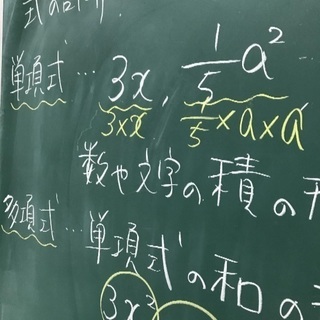 式の
単項式… 3x, 1/5 a²
3×x 1/5×a×a
数や文字の積の
多項式…単項式の和の
3x²